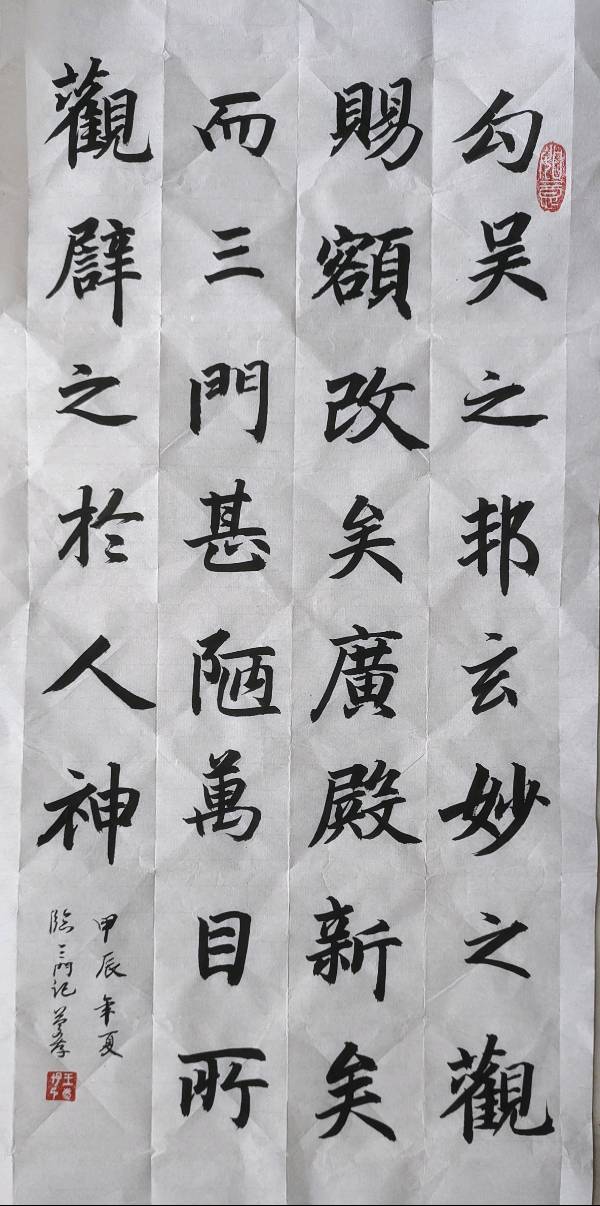 勾吴之邦玄妙之觀
賜額改矣廣殿新矣
而三門甚陋萬目所
觀辟之於人神
甲辰年夏
臨三門記